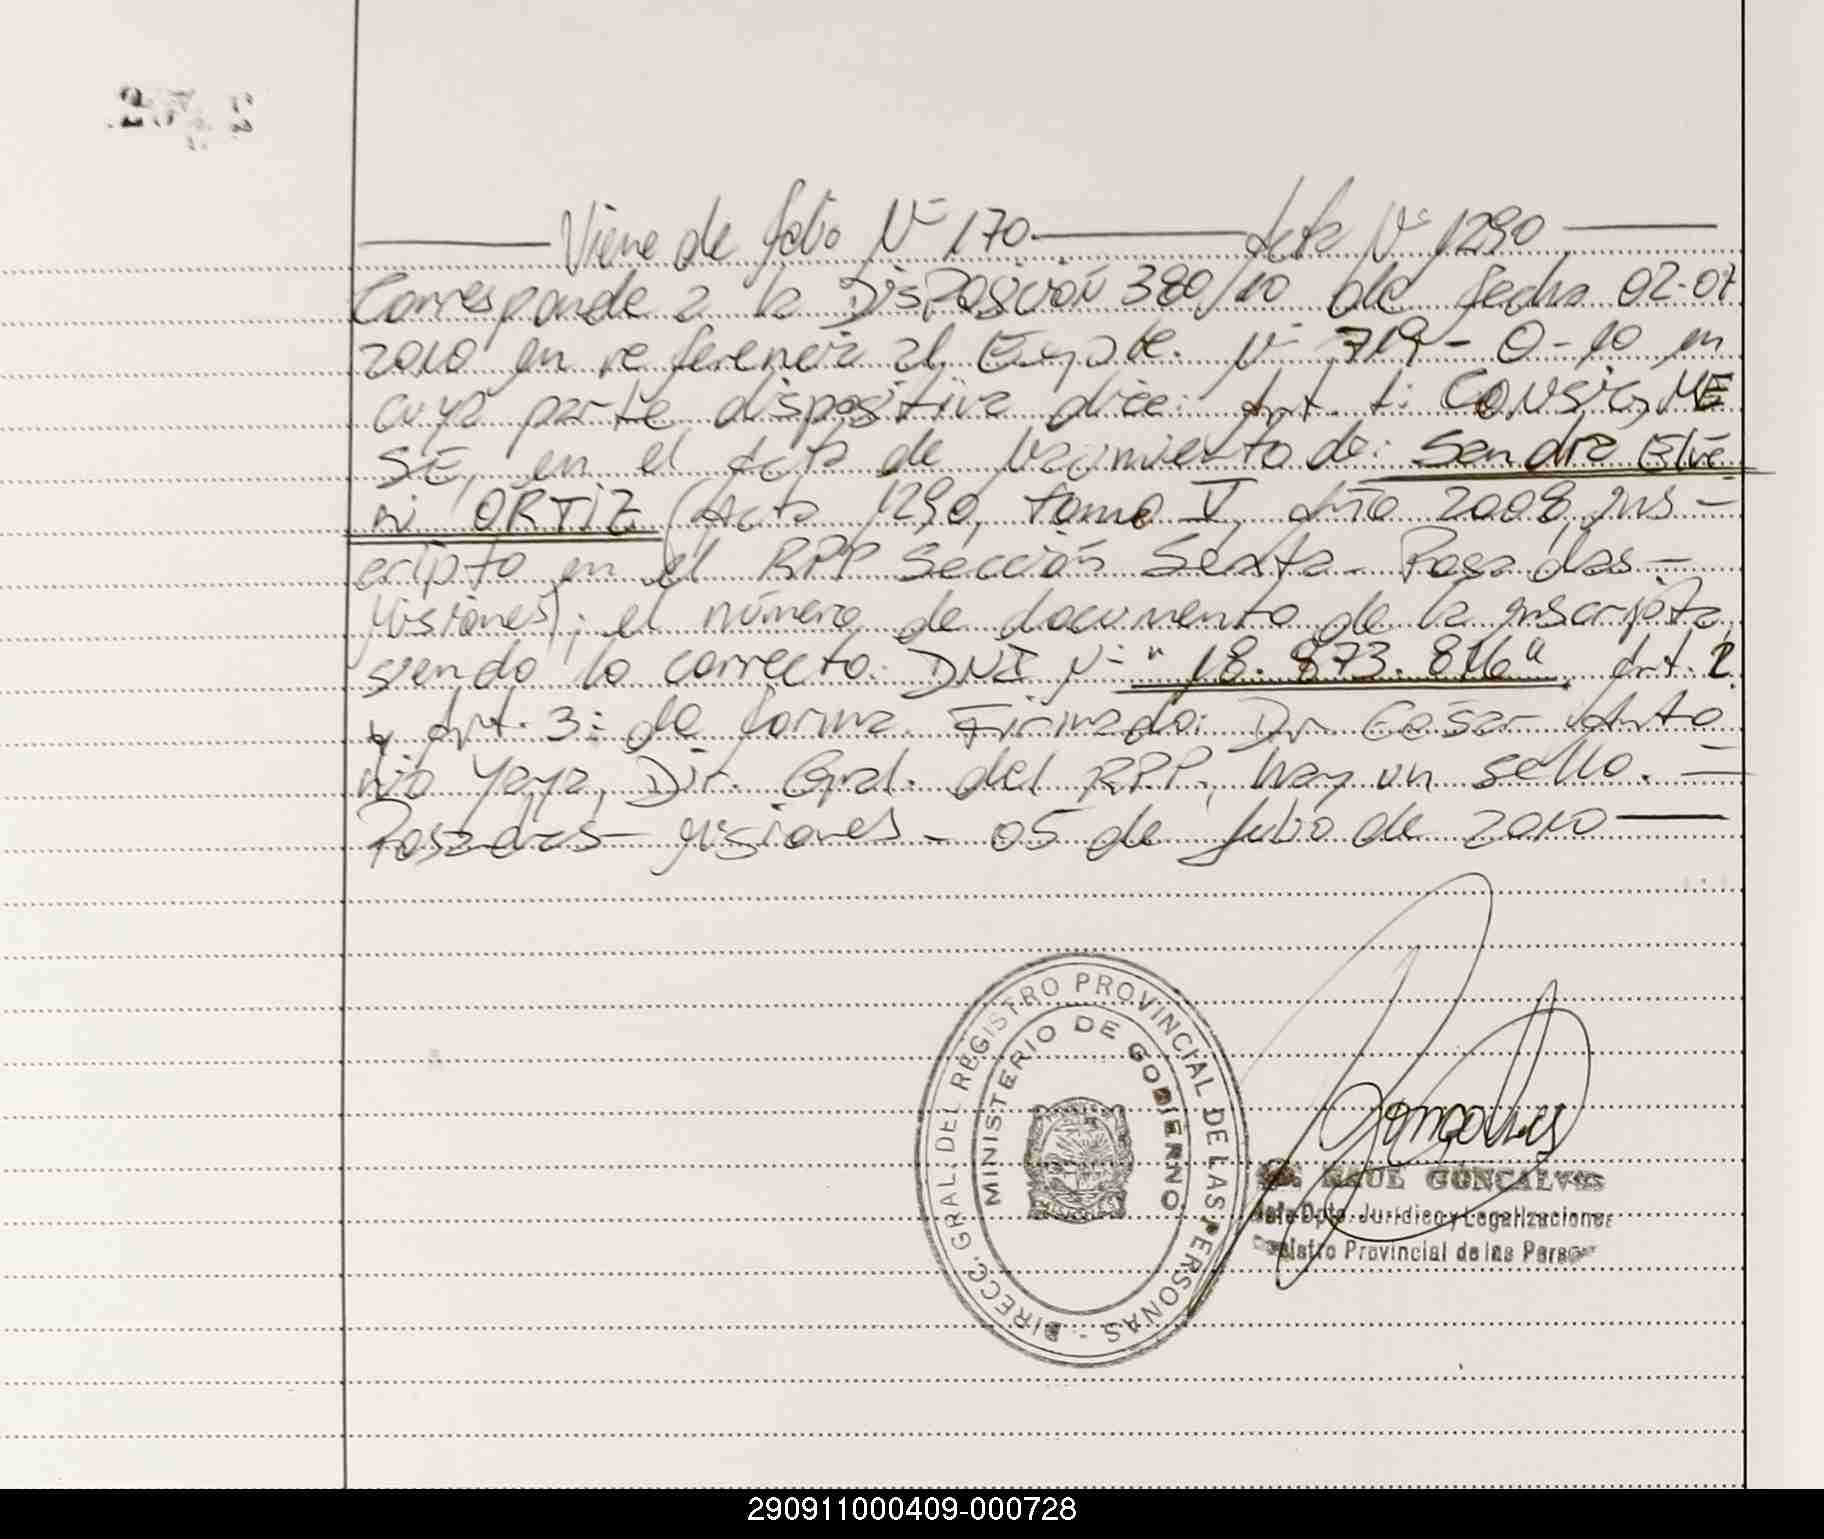 Viene de folio Nº 170 Acta Nº 1290
Corresponde a la Disposición 380/10 de fecha 02-07
2010 en referencia al Expte. Nº 719-O-10 en
cuya parte dispositiva dice: Art. 1: CONSIGNE
SE, en el Acta de Nacimiento de: Sandra Elve
ORTIZ (Acta 1290, tomo V, Año 2008, ins-
cripto en el RPP Sección Sexta - Posadas -
Misiones); el número de documento de la inscripta,
siendo lo correcto: DNI Nº "18.873.816" Art. 2
y Art. 3: de forma. Firmado: Dr. César Anto
nio Yaya, Dir. Gral. del RPP, hay un sello. =
Posadas - Misiones - 05 de Julio de 2010
DIRECC. GRAL. DEL REGISTRO PROVINCIAL DE LAS PERSONAS -
MINISTERIO DE GOBIERNO
RAUL GONCALVES
Jefe Dpto. Jurídico y Legalizaciones
Registro Provincial de las Personas
290911000409-000728